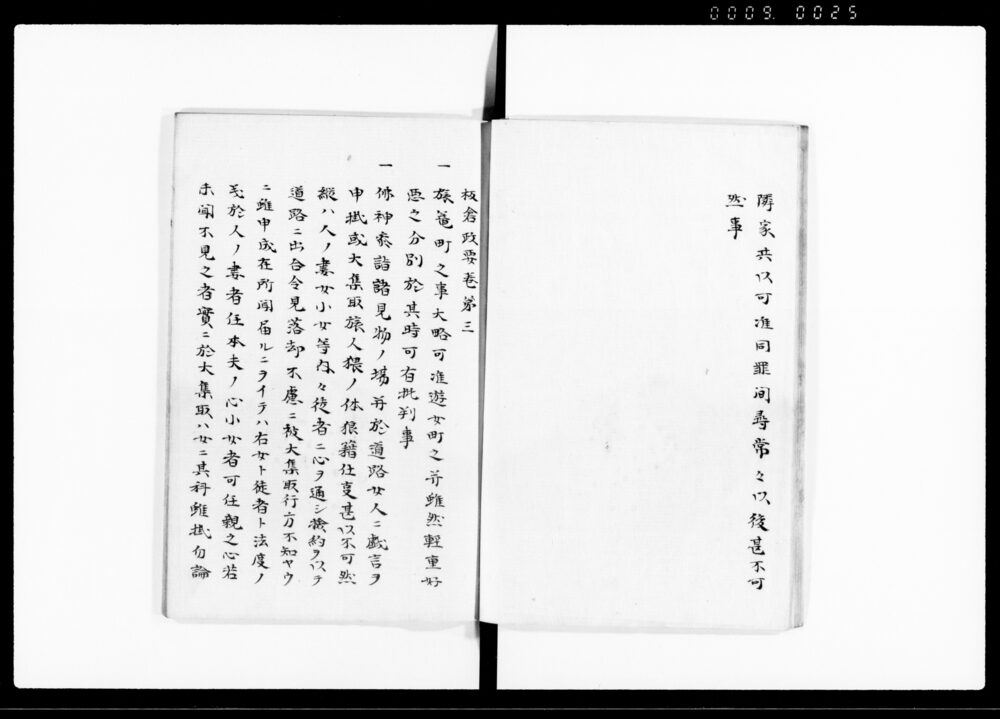 0009. 0025
隣家共以可准同罪间尋常々以後甚不可
然事
板倉政要巻第三
一 旅篭町之事大略可准遊女町之并雖然軽重好
悪之分別於其時可有批判事
一 佛神参詣諸見物ノ場并於道路女人ニ戯言ヲ
申掛或大集取旅人猥ノ体狼籍仕事甚以不可然
縦ハ人ノ妻女小女等内々徒者ニ心ヲ通シ検約ヲ以テ
道路ニ出合令見落却不慮ニ被大集取行方不知ヤウ
ニ雖申成在所聞届ルニヲイテハ右女ト徒者ト法度ノ
於人ノ妻者任本夫ノ心小女者可任親之心若
未聞不見之者實ニ於大集取ハ女ニ其科雖掛勿論